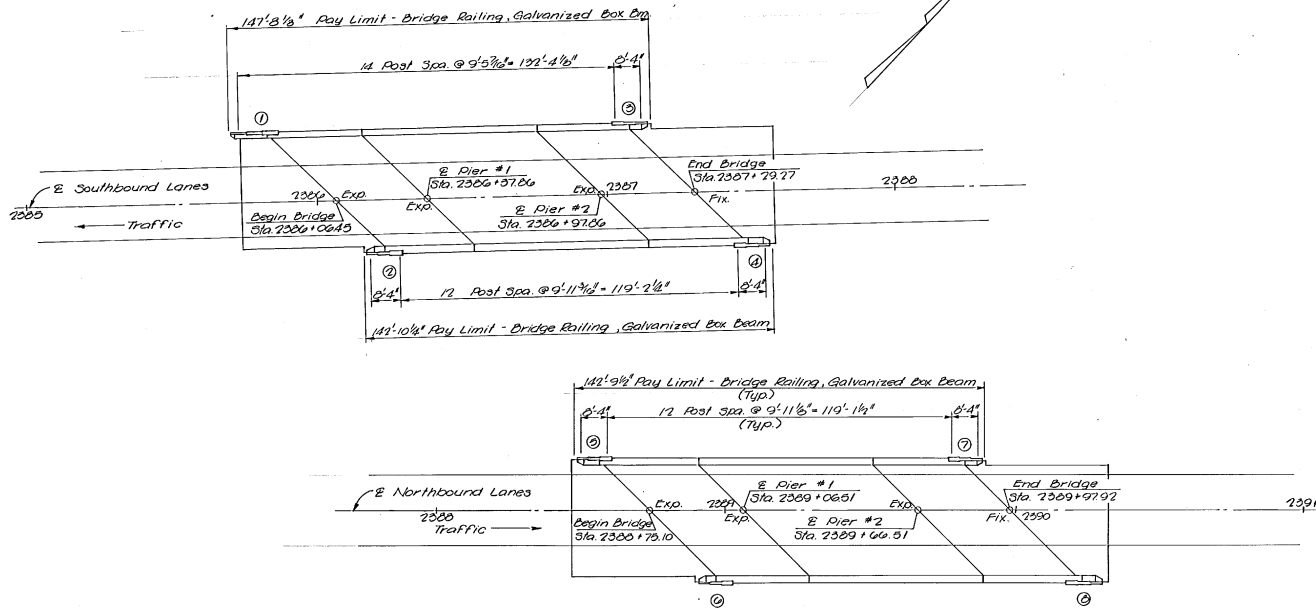 147'-8 1/8" Pay Limit - Bridge Railing, Galvanized Box Bm
14 Post Spa. @ 9'-5 7/16" = 132'-4 1/8"
8'-4"
①
③
℄ Southbound Lanes
2385
Traffic
2386
Exp.
Begin Bridge
Sta. 2386+06.45
℄ Pier #1
Sta. 2386+37.86
Exp.
Exp.
2387
℄ Pier #2
Sta. 2386+97.86
End Bridge
Sta. 2387+29.27
Fix.
2388
②
④
8'-4"
12 Post Spa. @ 9'-11 3/16" = 119'-2 1/4"
8'-4"
142'-10 1/4" Pay Limit - Bridge Railing, Galvanized Box Beam
142'-9 1/2" Pay Limit - Bridge Railing, Galvanized Box Beam
(Typ.)
8'-4"
12 Post Spa. @ 9'-11 1/8" = 119'-1 1/2"
(Typ.)
8'-4"
⑤
⑦
℄ Northbound Lanes
2388
Traffic
Exp.
Begin Bridge
Sta. 2388+75.10
2389
℄ Pier #1
Sta. 2389+06.51
Exp.
Exp.
℄ Pier #2
Sta. 2389+66.51
End Bridge
Sta. 2389+97.92
Fix.
2390
2391
⑥
⑧